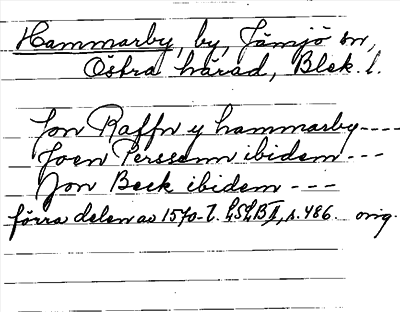 Hammarby, by, Jämjö sn,
Östra härad, Blek. l.
Jon Raffn y hammarby ----
Joen Perssonn ibidem ---
Jon Beck ibidem ---
förra delen av 1570-t. LSLB II, s. 486. orig.